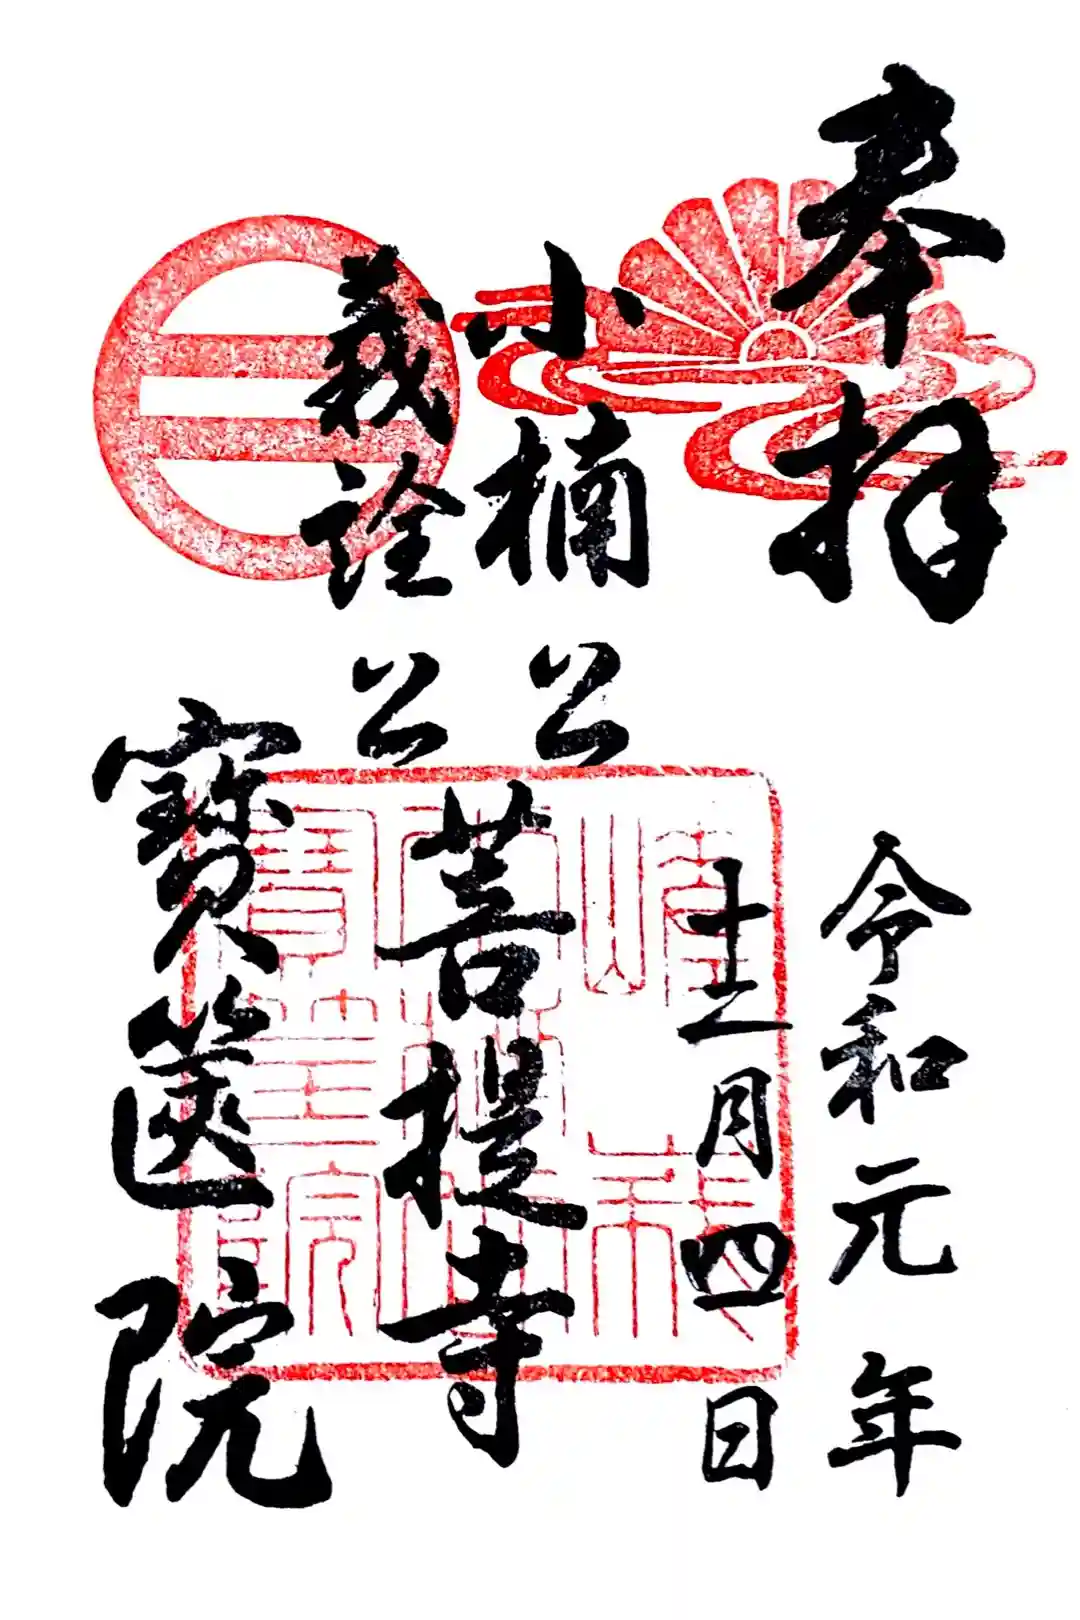 奉拝
令和元年
十二月四日
小楠公
義詮公
菩提寺
寶篋院